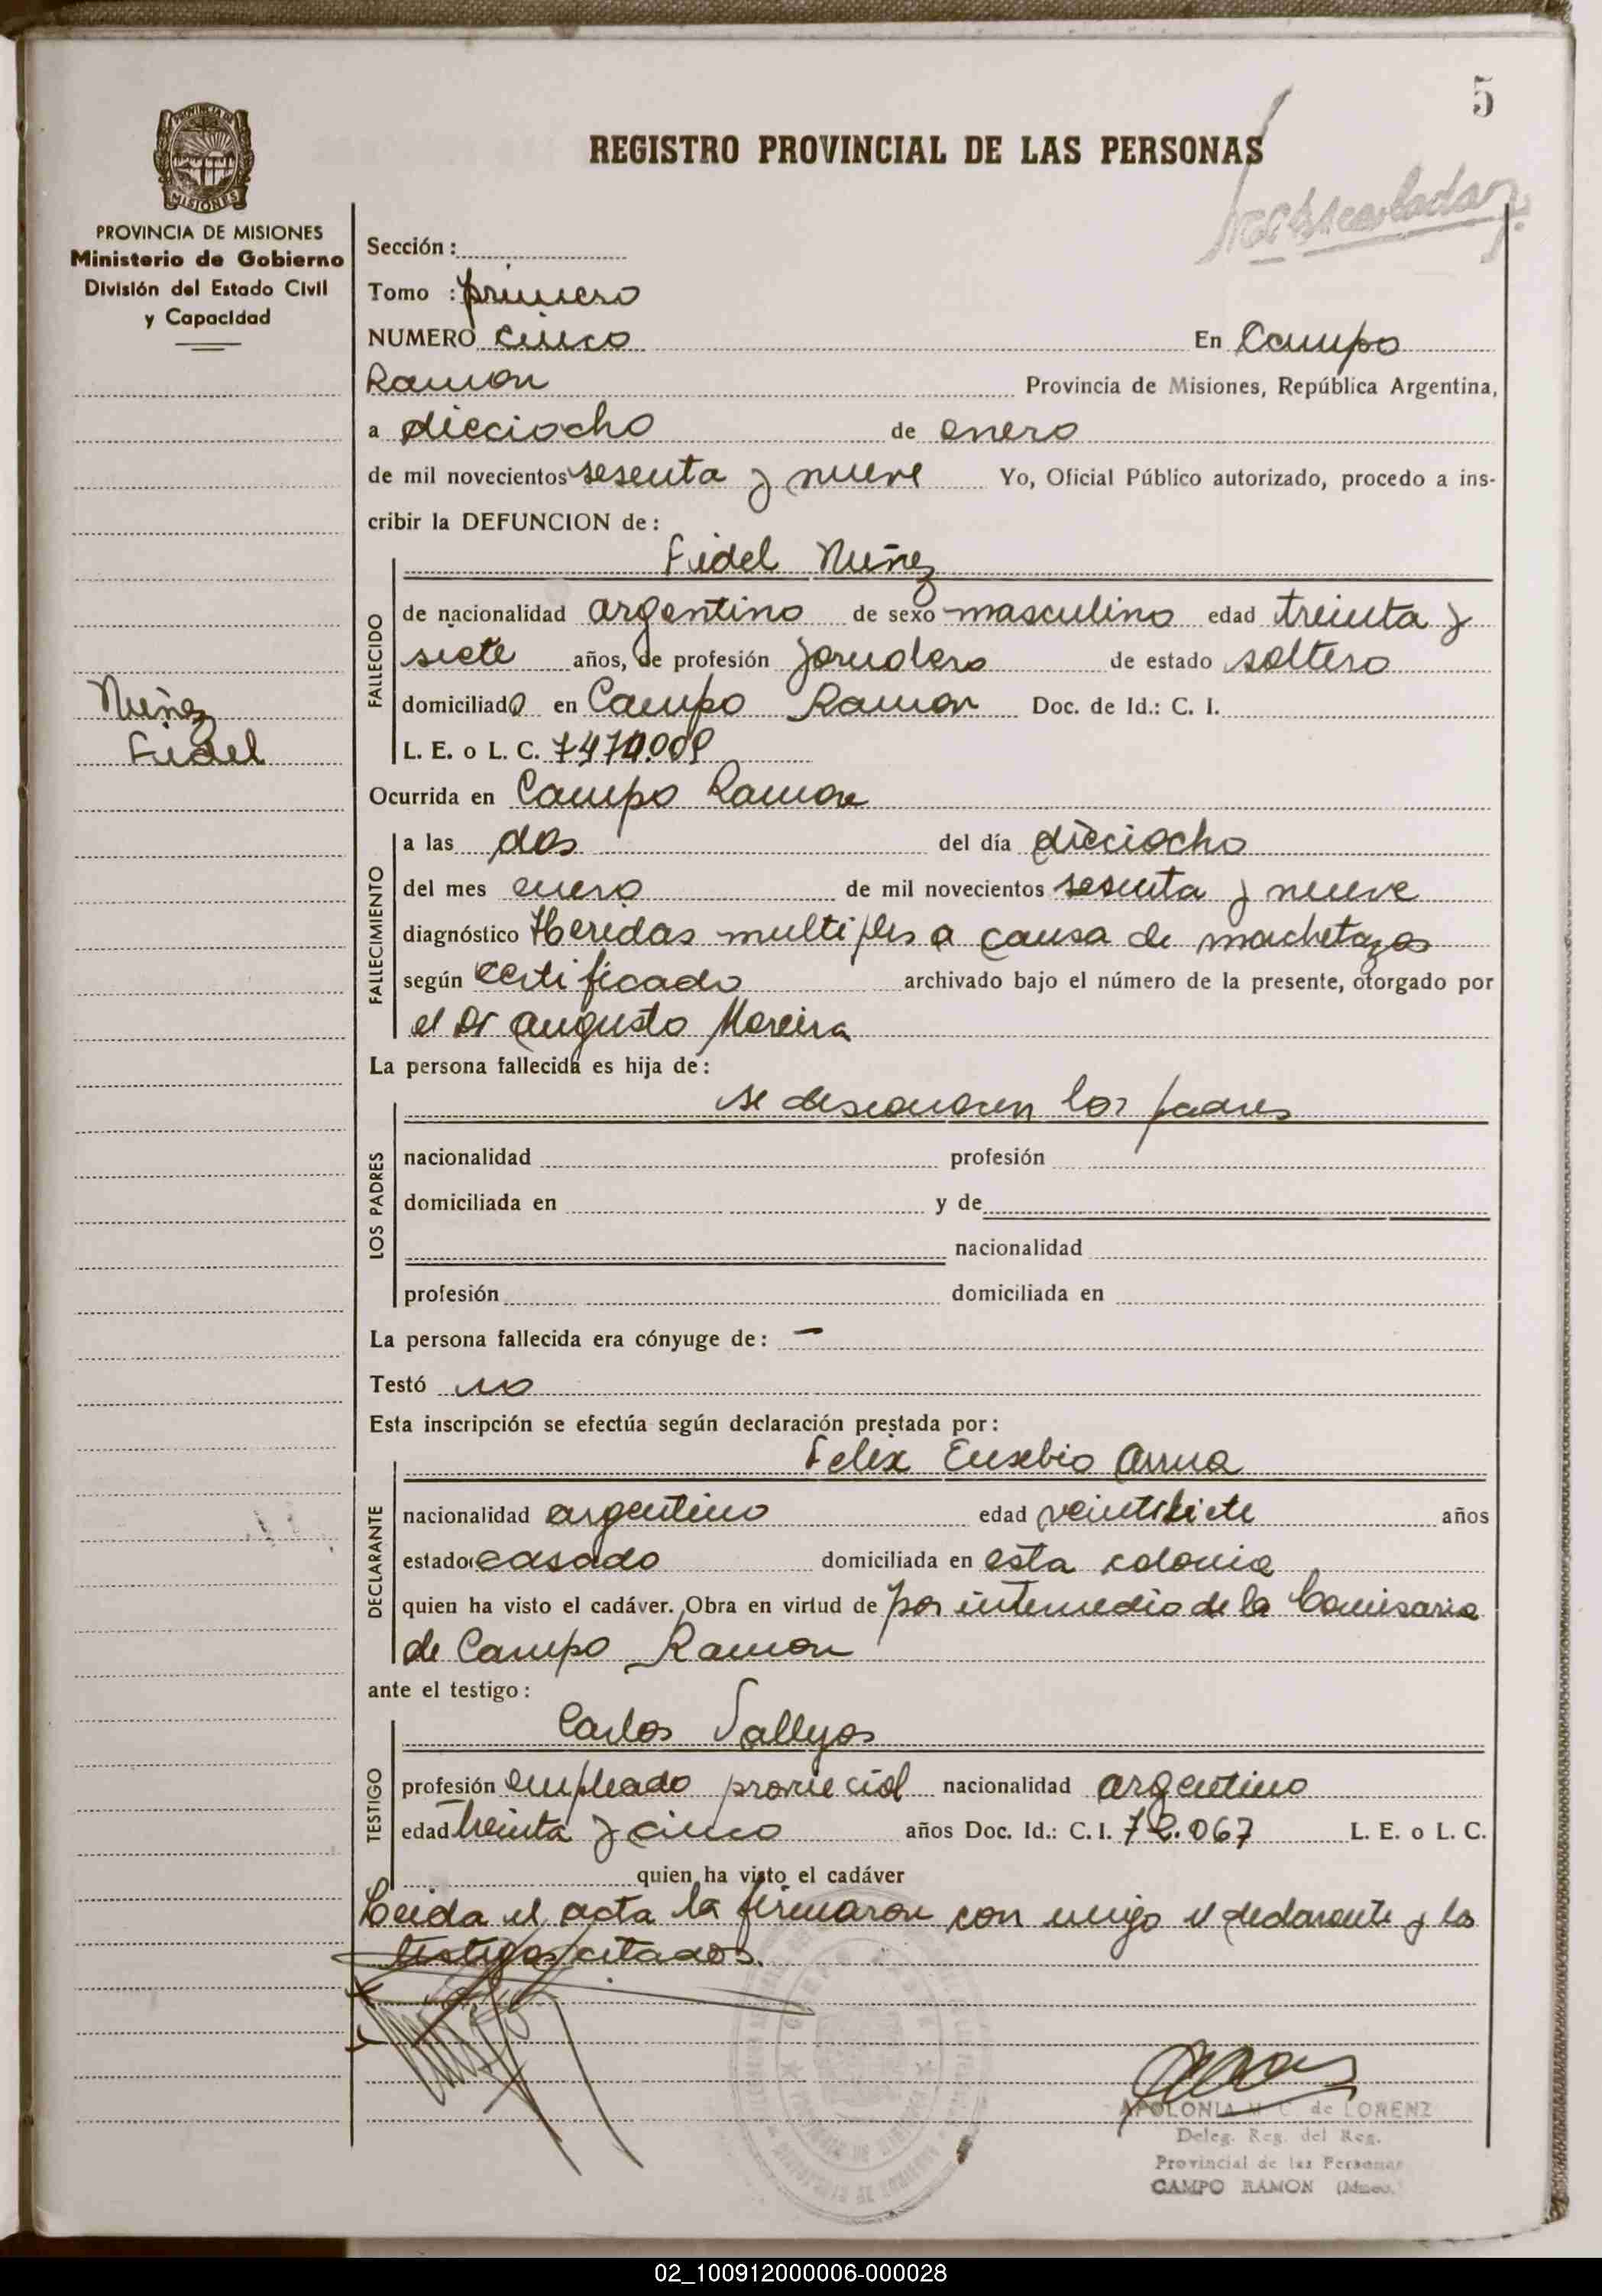 5
REGISTRO PROVINCIAL DE LAS PERSONAS
PROVINCIA DE
MISIONES
PROVINCIA DE MISIONES
Ministerio de Gobierno
División del Estado Civil
y Capacidad
Sección :
Tomo : primero
NUMERO cinco En Campo
Ramon Provincia de Misiones, República Argentina,
a dieciocho de enero
de mil novecientos sesenta y nueve Yo, Oficial Público autorizado, procedo a ins-
cribir la DEFUNCION de :
Fidel Nuñez
FALLECIDO
de nacionalidad argentino de sexo masculino edad treinta y
siete años, de profesión jornalero de estado soltero
domiciliado en Campo Ramon Doc. de Id.: C. I.
L. E. o L. C.
Nuñez
Fidel
Ocurrida en Campo Ramon
FALLECIMIENTO
a las dos del día dieciocho
del mes enero de mil novecientos sesenta y nueve
diagnóstico Heridas multiples a causa de machetazos
según certificado archivado bajo el número de la presente, otorgado por
el Dr Augusto Moreira
La persona fallecida es hija de :
se desconocen los padres
LOS PADRES
nacionalidad profesión
domiciliada en y de
nacionalidad
profesión domiciliada en
La persona fallecida era cónyuge de : —
Testó no
Esta inscripción se efectúa según declaración prestada por :
Felix Eusebio Arrua
DECLARANTE
nacionalidad argentino edad veintisiete años
estado casado domiciliada en esta colonia
quien ha visto el cadáver. Obra en virtud de por intermedio de la Comisaria
de Campo Ramon
ante el testigo :
Carlos Vallejos
TESTIGO
profesión empleado provincial nacionalidad argentino
edad treinta y cinco años Doc. Id.: C. I. 72.067 L. E. o L. C.
quien ha visto el cadáver
Leida el acta la firmaron con migo el declarante y los
testigos citados.
APOLONIA M. C. de LORENZ
Deleg. Reg. del Reg.
Provincial de las Personas
CAMPO RAMON (Mnes.)
02_100912000006-000028